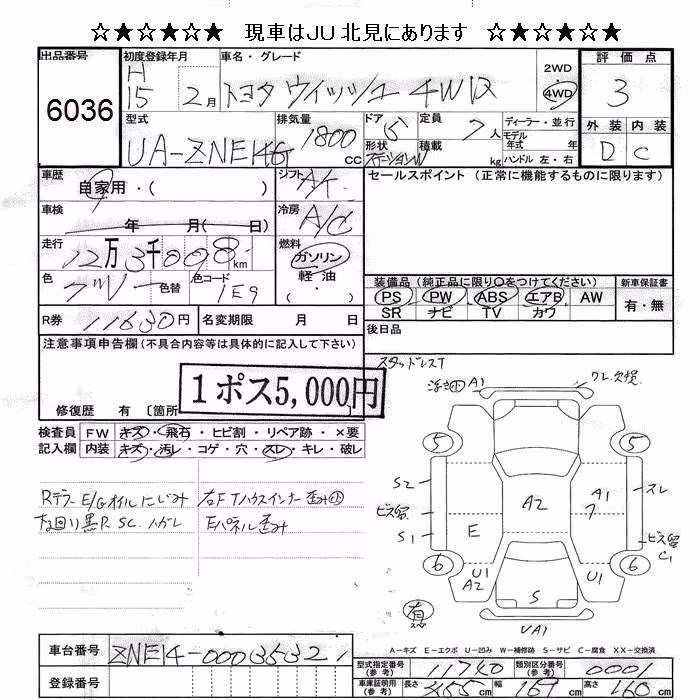 ☆★☆★☆★ 現車はJU北見にあります ☆★☆★☆★
出品番号 6036
初度登録年月 H15 2月
車名・グレード トヨタ ウィッシュ 4WD
2WD 4WD
評価点 3
外装 D 内装 C
型式 UA-ZNE14G
排気量 1800 cc
ドア 5 定員 7人
形状 ステーションW 積載 kg
ディーラー・並行
モデル年式 年
ハンドル 左・右
車歴 自家用・( )
シフト A/T
車検 年 月( 日)
冷房 A/C
走行 12万3千008km
燃料 ガソリン・軽油・( )
色 グレー 色替 色コード 1E9
R券 11630円 名変期限 月 日
セールスポイント(正常に機能するものに限ります)
装備品(純正品に限り○をつけてください) 新車保証書
PS PW ABS エアB AW 有・無
SR ナビ TV カワ
後日品
スタッドレスT
注意事項申告欄(不具合内容等は具体的に記入して下さい)
1ポス5,000円
修復歴 有 〔箇所
検査員記入欄
FW キズ・飛石・ヒビ割・リペア跡・×要
内装 キズ・汚レ・コゲ・穴・スレ・キレ・破レ
Rデフ E/Gオイルにじみ
下回り黒P. SC. ハガレ
右FTハウスインナー歪み小
Eパネル歪み
A1
ワレ欠損
5 5
S2
A2
A1
スレ
ビス留
7
S1
E
ビス留
C1
6 6
U1
A2
U1
S
有
VA1
A-キズ E-エクボ U-凹み W-補修跡 S-サビ C-腐食 XX-交換済
車台番号 ZNE14-00035321
登録番号
型式指定番号(参考) 11740 類別区分番号(参考) 0001
車庫証明用(参考) 長さ 455cm 幅 169cm 高さ 160cm